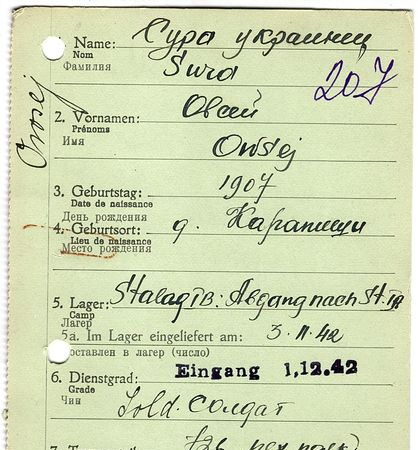 1. Name: Сура украинец
Nom
Фамилия Sura
207
Owsej
2. Vornamen: Овсей
Prénoms
Имя Owsej
3. Geburtstag: 1907
Date de naissance
День рождения
4. Geburtsort: д. Карапищи
Lieu de naissance
Место рождения
5. Lager: Stalag IB: Abgang nach St. IA
Camp
Лагерь
5a. Im Lager eingeliefert am: 3. 11. 42
оставлен в лагерь (число)
6. Dienstgrad: Eingang 1,12.42
Grade
Чин Sold. Солдат